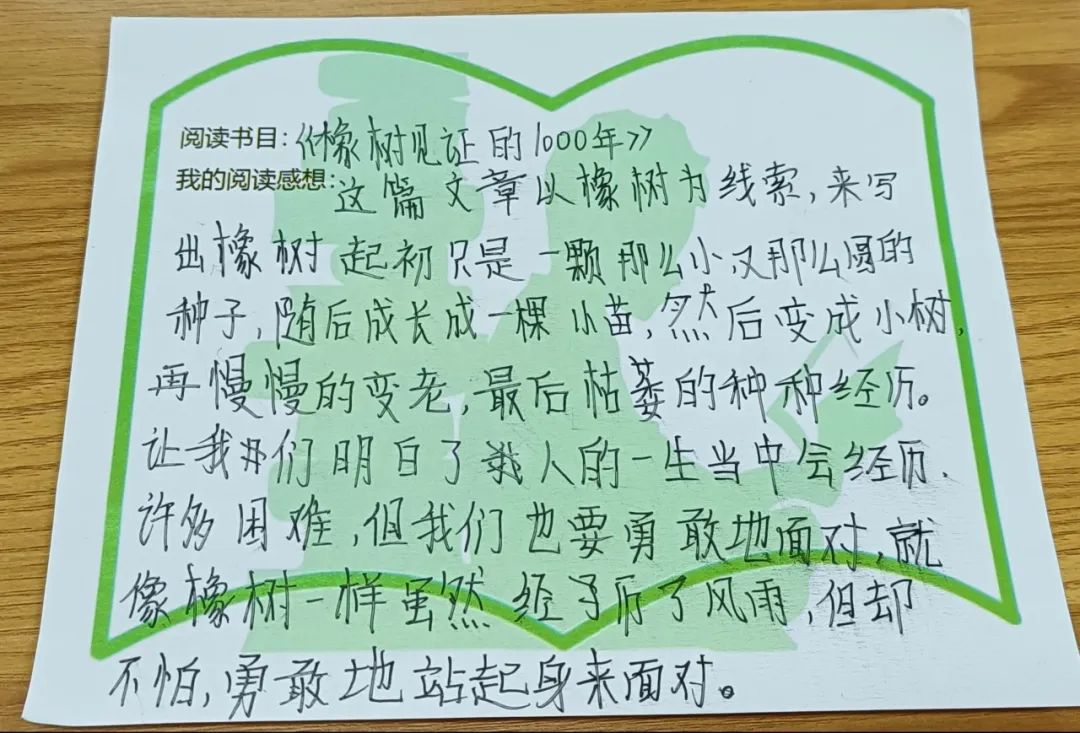 阅读书目:《橡树见证的1000年》
我的阅读感想:这篇文章以橡树为线索,来写
出橡树起初只是一颗那么小又那么圆的
种子,随后成长成一棵小苗,然后变成小树,
再慢慢的变老,最后枯萎的种种经历。
让我们明白了人的一生当中会经历
许多困难,但我们也要勇敢地面对,就
像橡树一样虽然经历了风雨,但却
不怕,勇敢地站起身来面对。